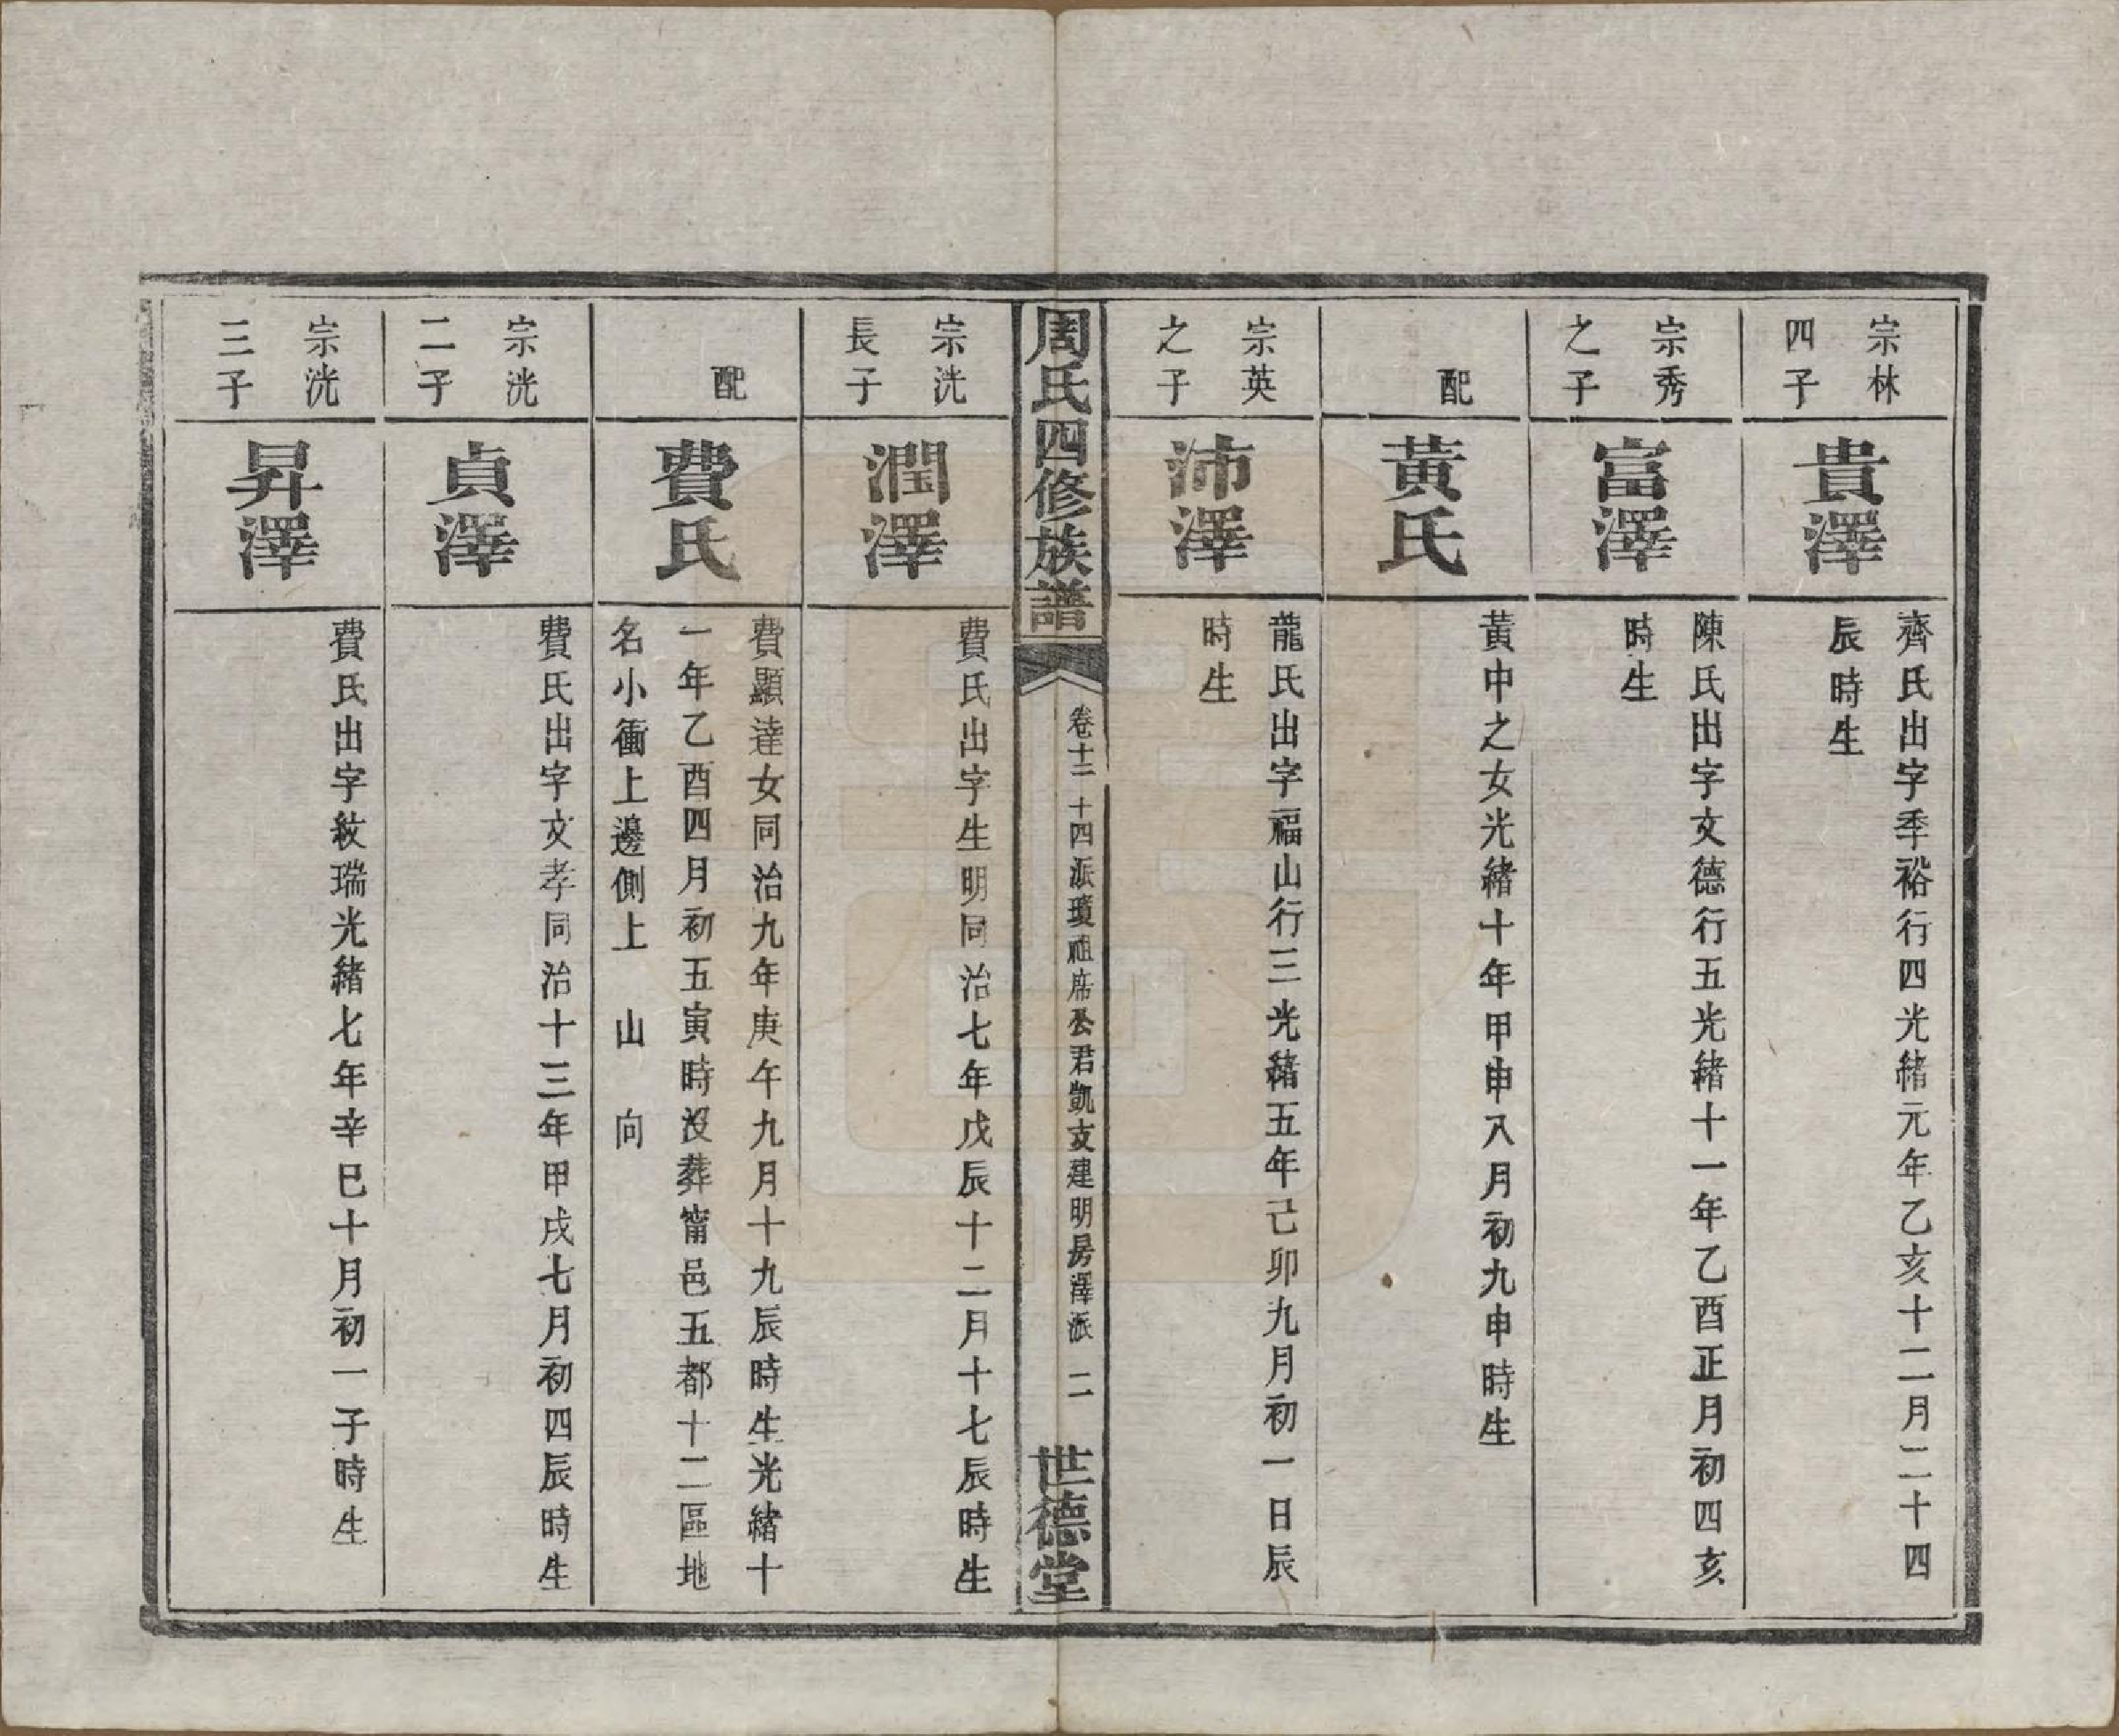 宗林
四子
貴澤
齊氏出字季裕行四光緒元年乙亥十二月二十四
辰時生
宗秀
之子
富澤
陳氏出字文德行五光緒十一年乙酉正月初四亥
時生
配
黃氏
黃中之女光緒十年甲申八月初九申時生
宗英
之子
沛澤
龍氏出字福山行三光緒五年己卯九月初一日辰
時生
周氏四修族譜
卷十二 十四派瓊祖席公君凱支建明房澤派 二
世德堂
宗洸
長子
潤澤
費氏出字生明同治七年戊辰十二月十七辰時生
配
費氏
費顯達女同治九年庚午九月十九辰時生光緒十
一年乙酉四月初五寅時沒葬甯邑五都十二區地
名小衝上邊側上 山 向
宗洸
二子
貞澤
費氏出字文孝同治十三年甲戌七月初四辰時生
宗洸
三子
昇澤
費氏出字紋瑞光緒七年辛巳十月初一子時生